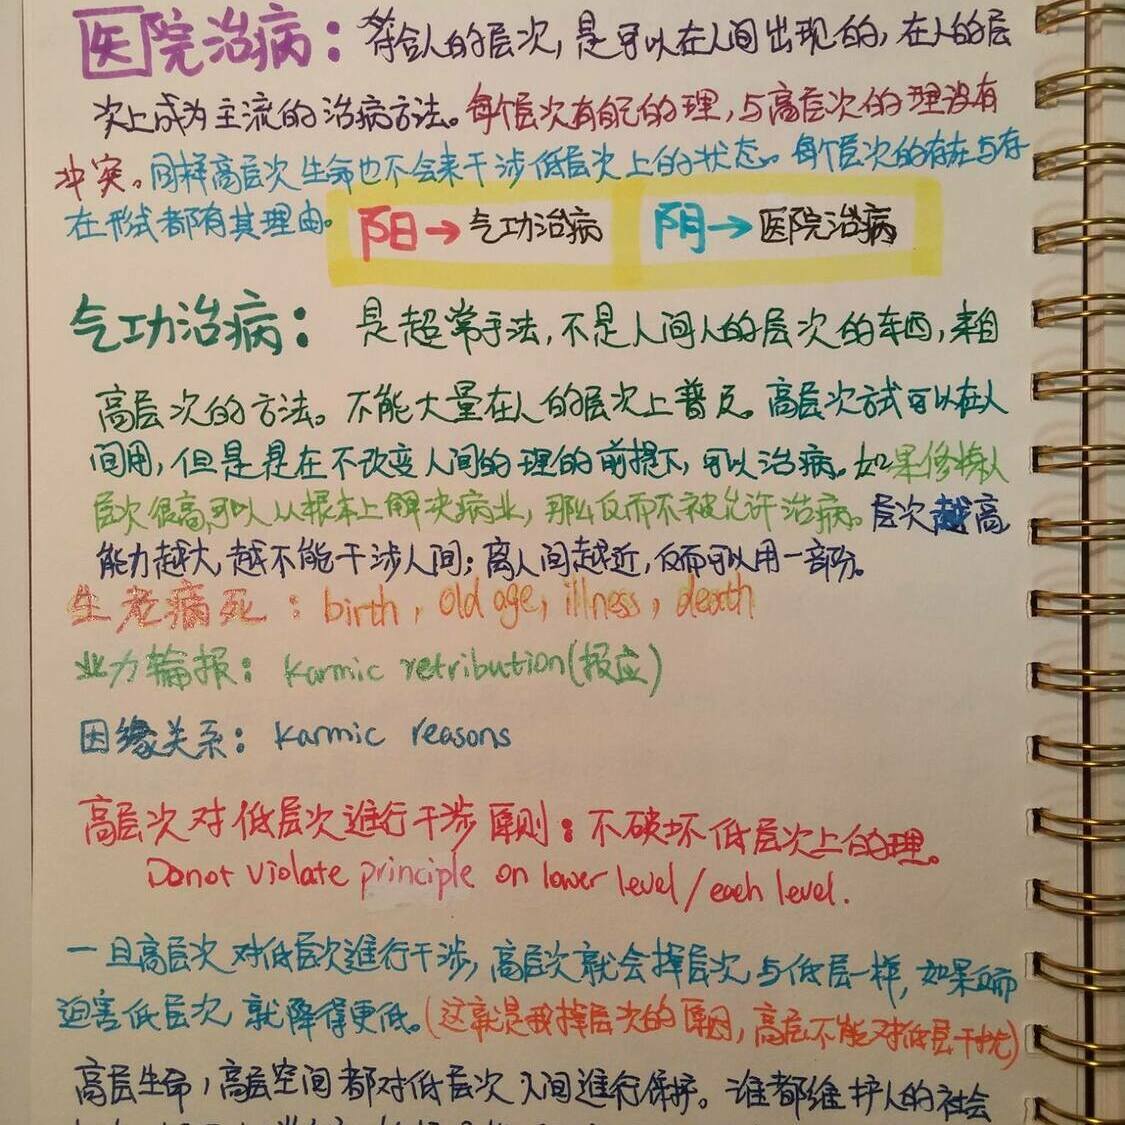 医院治病：符合人的层次，是可以在人间出现的，在人的层
次上成为主流的治病方法。每个层次有自己的理，与高层次的理没有
冲突。同样高层次生命也不会来干涉低层次上的状态。每个层次的存在与存
在形式都有其理由。
阳→气功治病 阴→医院治病
气功治病：是超常手法，不是人间人的层次的东西，来自
高层次的方法。不能大量在人的层次上普及。高层次方式可以在人
间用，但是是在不改变人间的理的前提下，可以治病。如果修炼人
层次很高，可以从根本上解决病业，那么反而不被允许治病。层次越高
能力越大，越不能干涉人间；离人间越近，反而可以用一部分。
生老病死：birth, old age, illness, death
业力轮报：karmic retribution(报应)
因缘关系：karmic reasons
高层次对低层次進行干涉原则：不破坏低层次上的理。
Donot violate principle on lower level/each level.
一旦高层次对低层次進行干涉，高层次就会掉层次与低层一样，如果反而
迫害低层次，就降得更低。(这就是我掉层次的原因，高层不能对低层干扰)
高层生命，高层空间都对低层次人间進行保护。谁都维护人的社会